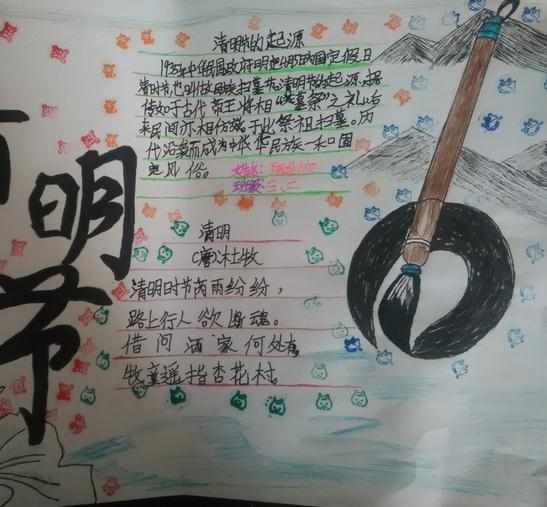 清明节
清明节的起源
1935年中华民国政府明定4月5日为国定假日
清明节,也叫做民族扫墓节。清明节的起源,据
传始于古代帝王将相"墓祭"之礼,后
来民间亦相仿效,于此祭祖扫墓。历
代沿袭而成为中华民族一种固
定风俗。
姓名:
班级:三、二
清明
(唐)杜牧
清明时节雨纷纷,
路上行人欲断魂。
借问酒家何处有
牧童遥指杏花村